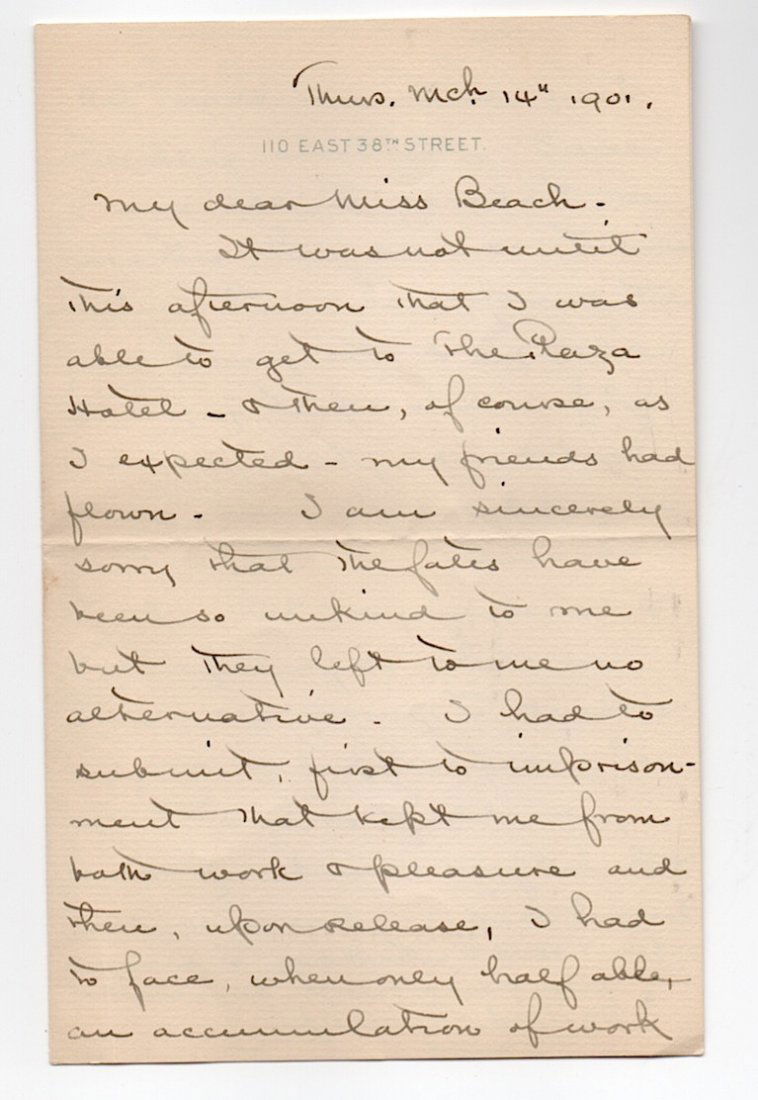 Thurs. Mch. 14th 1901.
110 EAST 38TH STREET.
My dear Miss Beach -
It was not until
this afternoon that I was
able to get to The Plaza
Hotel - & then, of course, as
I expected - my friends had
flown - I am sincerely
sorry that the fates have
been so unkind to me
but they left to me no
alternative - I had to
submit, first to imprison-
ment that kept me from
both work & pleasure and
then, upon release, I had
to face, when only half able,
an accumulation of work